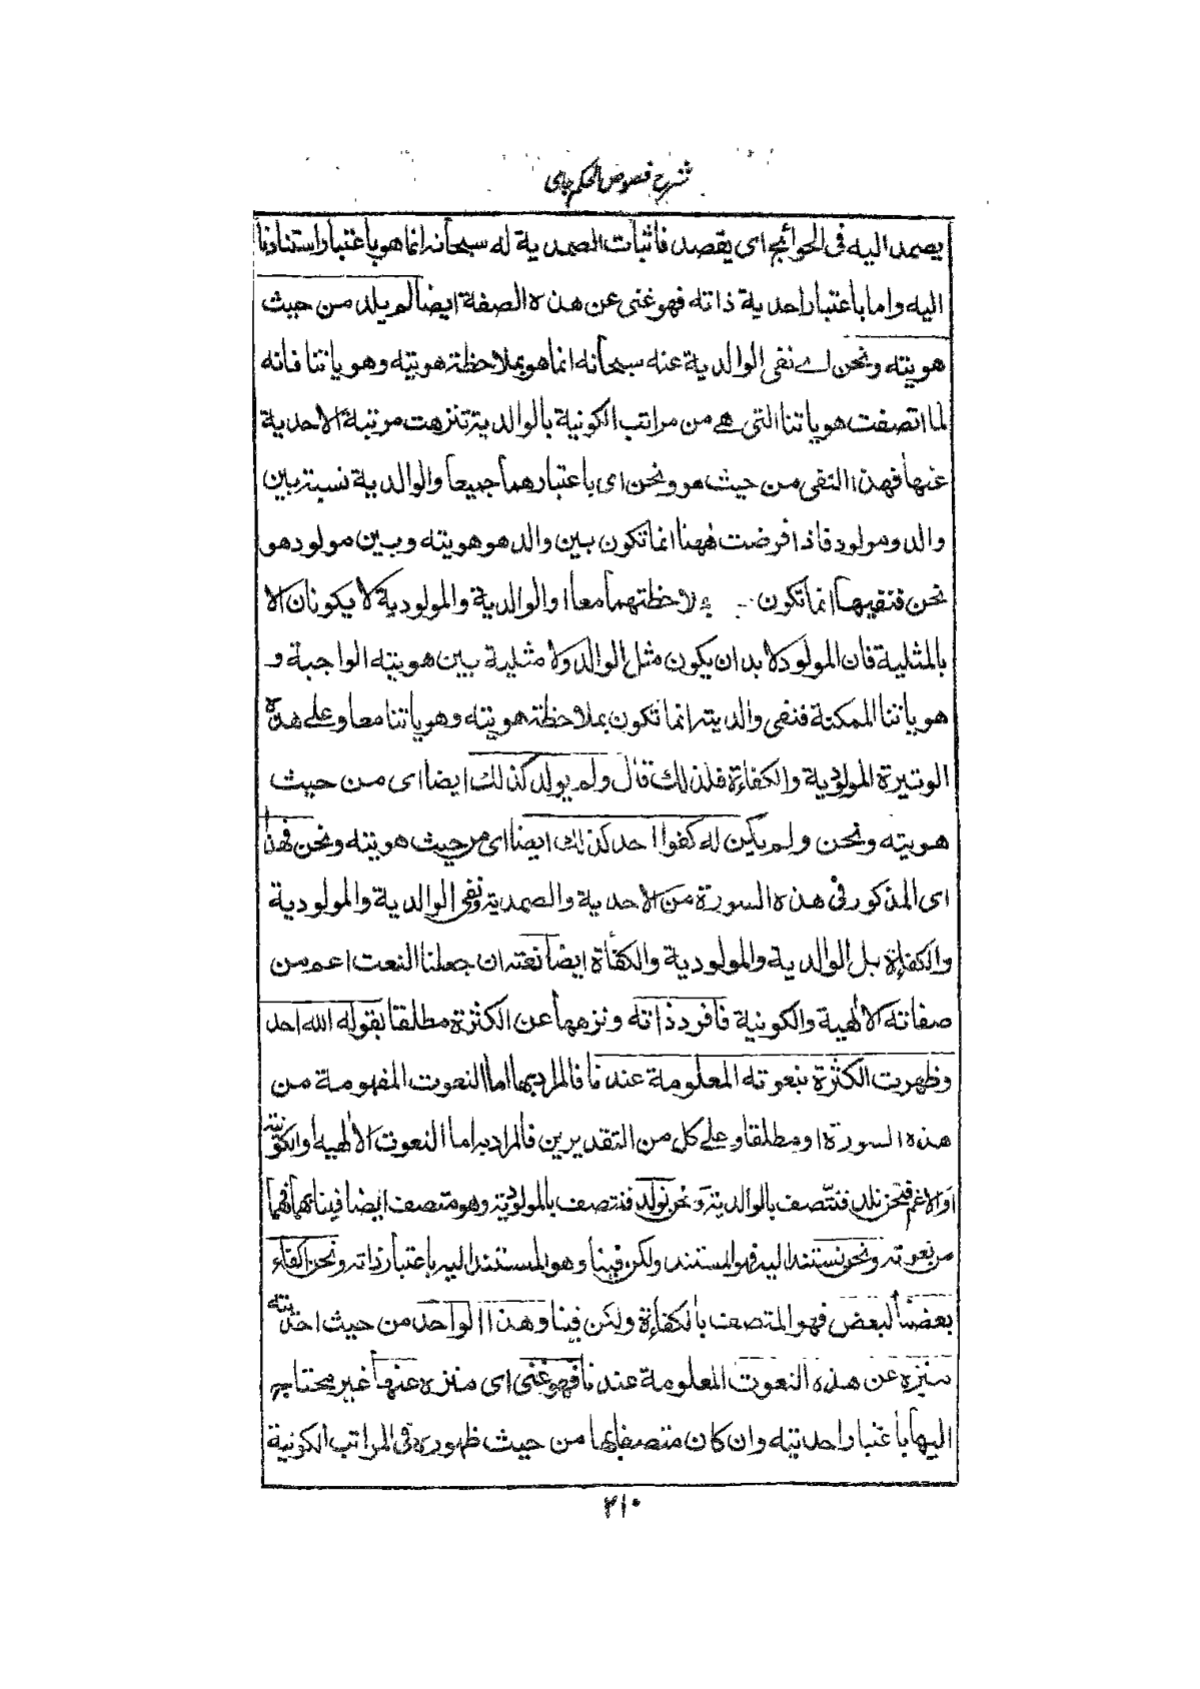 شرح فصوص الحكم جامى
يصمد اليه فى الحوائج اى يقصد فاثبات الصمدية له سبحانه انما هو باعتبار استنادنا
اليه واما باعتبار احدية ذاته فهو غنى عن هذه الصفة ايضا لم يلد من حيث
هويته ونحن اے نفى الوالدية عنه سبحانه انما هو بملاحظة هويته وهوياتنا فانه
لما اتصفت هوياتنا التى هے من مراتب الكونية بالوالدية تنزهت مرتبة الاحدية
عنها فهذا النفى من حيث هو ونحن اى باعتبارهما جميعا والوالدية نسبة بين
والد ومولود فاذا فرضت ههنا انما تكون بين والد هو هويته وبين مولود هو
نحن فنفيها انما تكون بملاحظتهما معا والوالدية والمولودية لا يكونان الا
بالمثلية فان المولود لا بد ان يكون مثل الوالد ولا مثلية بين هويته الواجبة و
هوياتنا الممكنة فنفى والديته انما تكون بملاحظة هويته وهوياتنا معا وعلى هذه
الوتيرة المولودية والكفاءة فلذلك قال ولم يولد كذلك ايضا اى من حيث
هويته ونحن ولم يكن له كفوا احد كذلك ايضا اى من حيث هويته ونحن فهذا
اى المذكور فى هذه السورة من الاحدية والصمدية ونفى الوالدية والمولودية
والكفاءة بل الوالدية والمولودية والكفأة ايضا نعته ان جعلنا النعت اعم من
صفاته الالهية والكونية فافرد ذاته ونزهها عن الكثرة مطلقا بقوله الله احد
وظهرت الكثرة بنعوته المعلومة عندنا فالمراد بها اما النعوت المفهومة من
هذه السورة او مطلقا وعلى كل من التقديرين فالمراد به اما النعوت الالهيه او الكونية
او الاعم فنحن نلد فنتصف بالوالدية ونحن نولد فنتصف بالمولودية وهو متصف ايضا فينا بهما فهما
من نعوته ونحن نستند اليه فهو المستند ولكن فينا وهو المستند اليه باعتبار ذاته ونحن اكفاء
بعضنا لبعض فهو المتصف بالكفاءة ولكن فينا وهذا الواحد من حيث احديته
منزه عن هذه النعوت المعلومة عندنا فهو غنى اى منزه عنها غير محتاج
اليها باعتبار احديته وان كان متصفا بها من حيث ظهوره فى المراتب الكونية
٢١٠